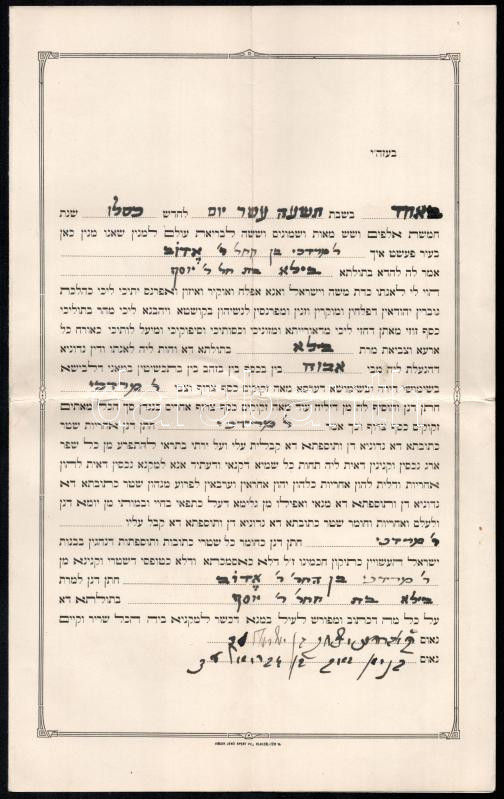 בעזה״י
באחד בשבת תשעה עשר יום לחדש כסלו שנת
חמשת אלפים ושש מאות ושמונים וששה לבריאת עולם למנין שאנו מנין כאן
בעיר פעשט איך ר׳ מרדכי בן
אמר לה להדא בתולתא בילא בת ר׳ יוסף
הוי לי לאנתו כדת משה וישראל ואנא אפלח ואוקיר ואיזון ואפרנס יתיכי ליכי כהלכת
גוברין יהודאין דפלחין ומוקרין וזנין ומפרנסין לנשיהון בקושטא ויהבנא ליכי מהר בתוליכי
כסף זוזי מאתן דחזי ליכי מדאורייתא ומזוניכי וכסותיכי וסיפוקיכי ומיעל לותיכי כאורח כל
ארעא וצביאת מרת בילא בתולתא דא והות ליה לאנתו ודין נדוניא
דהנעלת ליה מבי אבוה בין בכסף בין בזהב בין בתכשיטין במאני דלבושא
בשימושי דירה ובשימושא דערסא מאה זקוקים כסף צרוף וצבי ר׳ מרדכי
חתן דנן והוסיף לה מן דיליה עוד מאה זקוקים כסף צרוף אחרים כנגדן סך הכל מאתים
זקוקים כסף צרוף וכך אמר ר׳ מרדכי חתן דנן אחריות שטר
כתובתא דא נדוניא דן ותוספתא דא קבלית עלי ועל ירתי בתראי להתפרע מן כל שפר
ארג נכסין וקנינין דאית לי תחות כל שמיא דקנאי ודעתיד אנא למקנא נכסין דאית להון
אחריות ודלית להון אחריות כלהון יהון אחראין וערבאין לפרוע מנהון שטר כתובתא דא
נדוניא דן ותוספתא דא מנאי ואפילו מן גלימא דעל כתפאי בחיי ובמותי מן יומא דנן
ולעלם ואחריות וחומר שטר כתובתא דא נדוניא דן ותוספתא דא קבל עליו
ר׳ מרדכי חתן דנן כחומר כל שטרי כתובות ותוספתות דנהגין בבנות
ישראל העשויין כתיקון חכמינו ז״ל דלא כאסמכתא ודלא כטופסי דשטרי וקנינא מן
ר׳ מרדכי בן ר׳ חתן דנן למרת
בילא בת ר׳ יוסף בתולתא דא
על כל מה דכתיב ומפורש לעיל במנא דכשר למקניא ביה הכל שריר וקים
נאום
נאום עד
darabanth